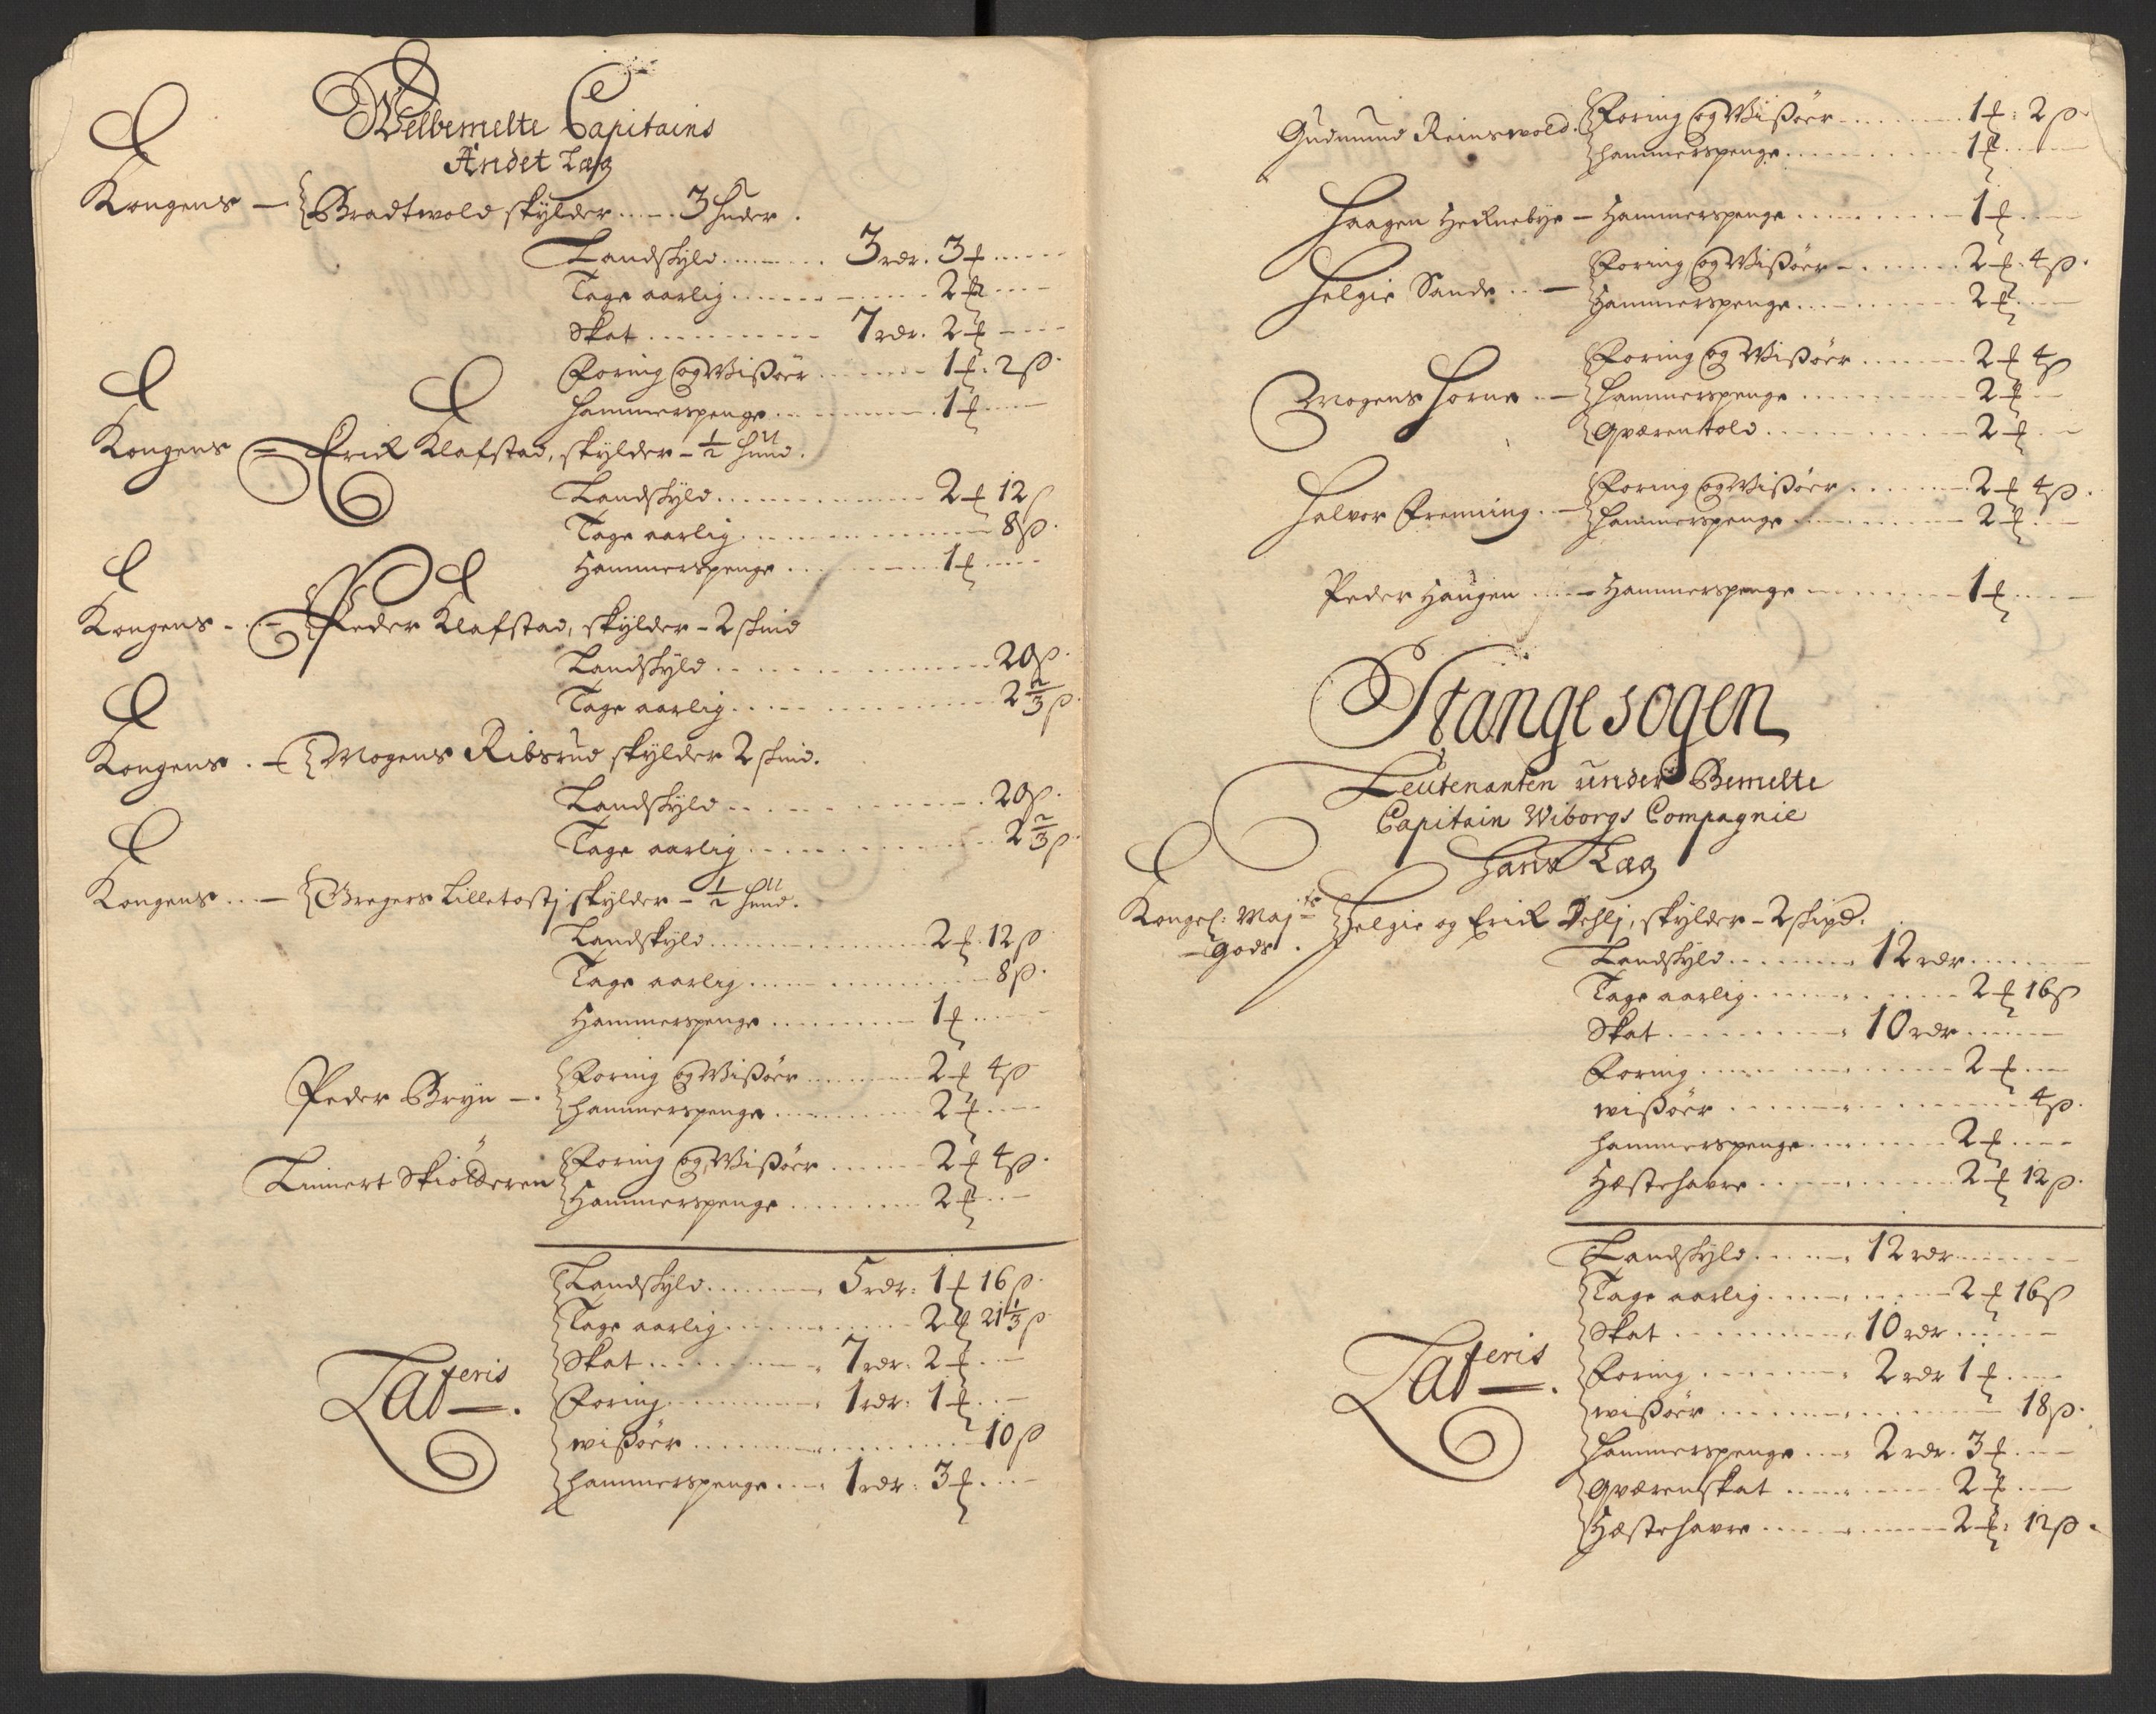 Welbemelte Capitains
Andet Læg
Kongens — Bradtwold skylder ..... 3 huder.
Landskyld ........ 3 rdr. 3 ℔ .....
Tage aarlig ............ 2 ℔ ....
Skat .......... 7 rdr. 2 ℔ ....
Foring og Wißøer ....... 1 ℔. 2 ß.
hammerspenge ......... 1 ℔ ....
Kongens — Erick Klafstad, skylder - ½ hud.
Landskyld ............ 2 ℔ 12 ß
Tage aarlig ............ 8 ß.
Hammerspenge ......... 1 ℔ ....
Kongens - Peder Klafstad, skylder - 2 skind
Landskyld ............ 20 ß.
Tage aarlig ............ 2 2/3 ß.
Kongens . - Mogens Ribsrud skylder 2 skind.
Landskyld ............ 20 ß.
Tage aarlig ............ 2 2/3 ß
Kongens ... — Gregers Lilletostj skylder - ½ hud.
Landskyld ............ 2 ℔. 12 ß
Tage aarlig ............ 8 ß.
Hammerspenge ......... 1 ℔ .....
Peder Bryn —. Foring og Wißøer ....... 2 ℔ 4 ß
hammerspenge ......... 2 ℔ ....
Linnert Skiolderen Foring og Wißøer ...... 2 ℔ 4 ß.
Hammerspenge ......... 2 ℔ ...
Landskyld ........ 5 rdr: 1 ℔ 16 ß.
Tage aarlig ......... 2 ℔ 21 1/3 ß
Skat ......... 7 rdr: 2 ℔ ...
Lateris. Foring ......... 1 rdr: 1 ℔ ...
wißøer ............ 10 ß
hammerspenge .... 1 rdr: 3 ℔ ....
Gudmund Reinswold. Foring og Wißøer ....... 1 ℔: 2 ß
hammerspenge ......... 1 ℔ ....
Haagen Hecknebye — Hammerspenge ......... 1 ℔ ....
Helgie Sande ... — Foring og Wißøer ....... 2 ℔. 4 ß.
Hammerspenge ......... 2 ℔ ....
Mogens Horne .. — Foring og Wißøer ....... 2 ℔ 4 ß
hammerspenge ......... 2 ℔ ...
Qværentold ......... 2 ℔ ...
Halvor Frenning . — Foring og Wißøer ....... 2 ℔ 4 ß.
hammerspenge ......... 2 ℔ ...
Peder Haugen ..... — Hammerspenge ......... 1 ℔ ....
Stange sogen
Leutenanten under Bemelte
Capitain Wiborgs Compagnie
Hans Læg
Kongel: Maj:ts Helgie og Erick Dehlj, skylder - 2 skipd.
— Gods.
Landskyld ........ 12 rdr ......
Tage aarlig ......... 2 ℔ 16 ß
Skat ......... 10 rdr .....
Foring ............ 2 ℔ ...
wißøer ............ 4 ß.
hammerspenge ......... 2 ℔ ....
Hæstehavre ......... 2 ℔ 12 ß.
Landskyld ...... 12 rdr ......
Tage aarlig ......... 2 ℔ 16 ß
Skat ......... 10 rdr .....
Lateris. Foring ......... 2 rdr 1 ℔ ....
wißøer ............ 18 ß.
hammerspenge .... 2 rdr. 3 ℔ ....
Qværenskat ......... 2 ℔ ....
Hæstehavre ......... 2 ℔: 12 ß.